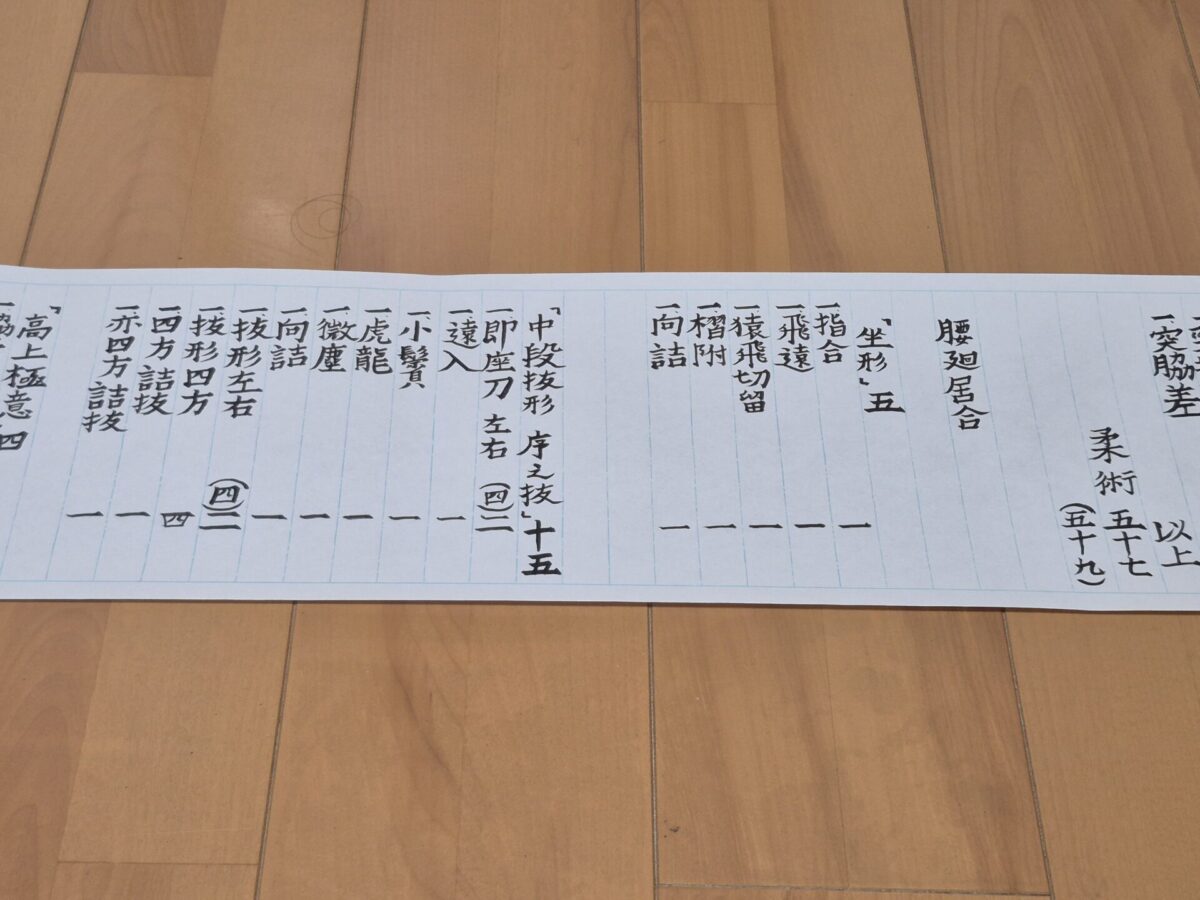 一突脇差
以上
柔術 五十七
(五十九)
腰廻居合
「坐形」五
一指合 一
一飛遠 一
一猿飛切留 一
一榴附 一
一向詰 一
「中段抜形 序之抜」十五
一即座刀 左右 (四)二
一遠入 一
一小鬢 一
一虎龍 一
一微塵 一
一向詰 一
一抜形左右 (四)二
一抜形四方 四
一四方詰抜 一
一亦四方詰抜 一
「高上極意」四